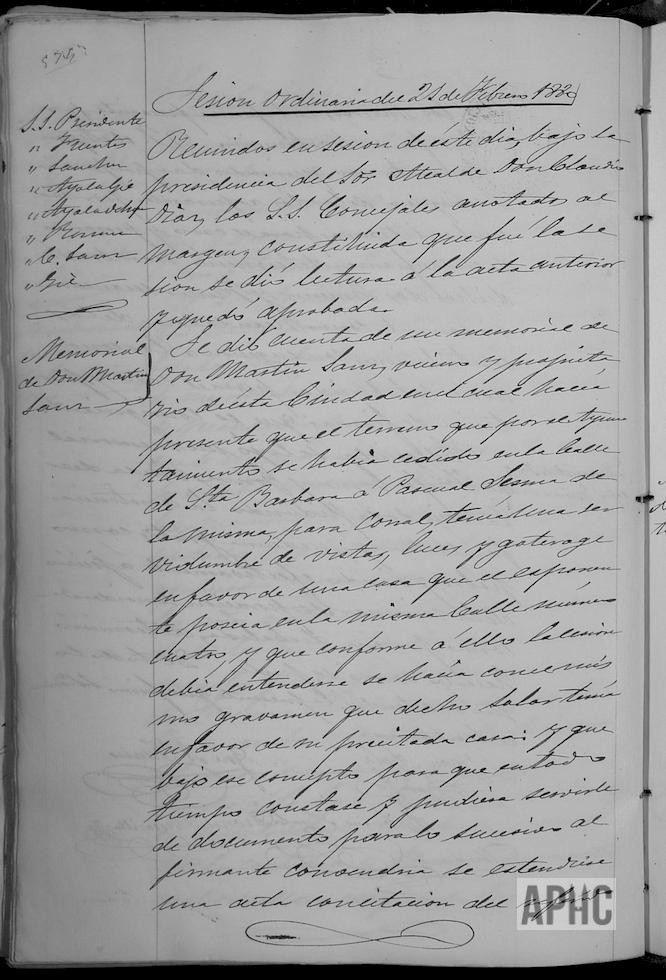 Sesion ordinaria del 21 de Febrero 1880
S.S. Presidente
" Fuentes
" Sanchez
" Ayala Gil
" Ayala
" C. Sanz
" Gil
Reunidos en sesion de éste dia, bajo la
presidencia del Sor Alcalde Don Claudio
Diaz, los S.S. Concejales anotados al
margen, constituida que fué la se
sion se dió lectura á la acta anterior
y quedó aprobada.
Memorial
de Don Martin
Sanz
Se dió cuenta de un memorial de
Don Martin Sanz, vecino y propieta
rio de ésta Ciudad en el cual hacia
presente que el terreno que por el Ayun
tamiento se habia cedido en la Calle
de Sta Barbara á Pascual Serna de
la misma, para corral, tenia una ser
vidumbre de vistas, luces y goterage
en favor de una casa que el esponen
te poseia en la misma Calle número
cuatro y que conforme á ello la cesion
debia entenderse se hacia con el mis
mo gravamen que dicho solar tenia
en favor de su precitada casa: y que
bajo ese concepto para que en todo
tiempo constase y pudiera servirle
de documento para lo sucesivo al
firmante convendria se estendiese
una acta con citacion del
APHC